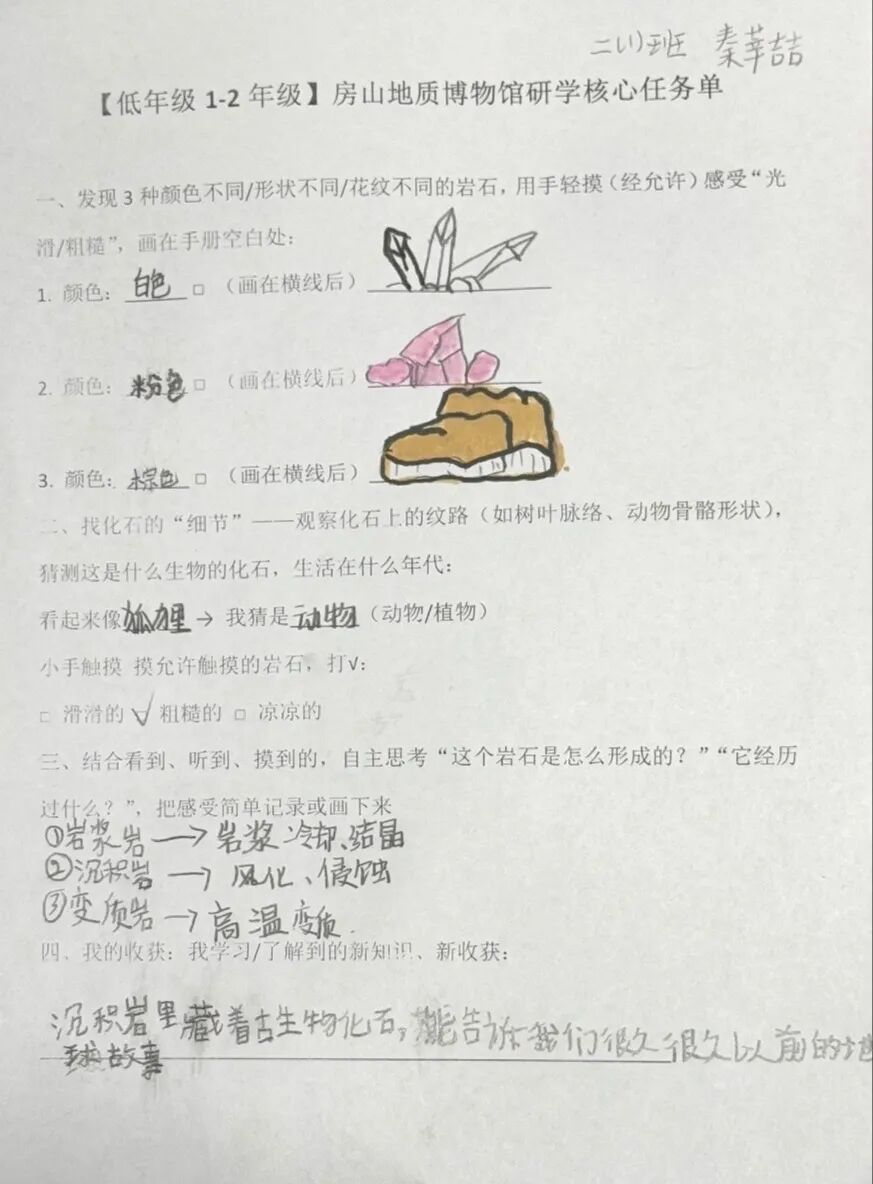 二(1)班 秦莘喆
【低年级1-2年级】房山地质博物馆研学核心任务单
一、发现3种颜色不同/形状不同/花纹不同的岩石，用手轻摸（经允许）感受“光
滑/粗糙”，画在手册空白处：
1. 颜色：白色 □ （画在横线后）
2. 颜色：粉色 □ （画在横线后）
3. 颜色：棕色 □ （画在横线后）
二、找化石的“细节”——观察化石上的纹路（如树叶脉络、动物骨骼形状），
猜测这是什么生物的化石，生活在什么年代：
看起来像狐狸→ 我猜是动物（动物/植物）
小手触摸 摸允许触摸的岩石，打√：
□ 滑滑的 √ 粗糙的 □ 凉凉的
三、结合看到、听到、摸到的，自主思考“这个岩石是怎么形成的？”“它经历
过什么？”，把感受简单记录或画下来
①岩浆岩→岩浆冷却、结晶
②沉积岩→风化、侵蚀
③变质岩→高温变质.
四、我的收获：我学习/了解到的新知识、新收获：
沉积岩里藏着古生物化石，能告诉我们很久很久以前的地
球故事